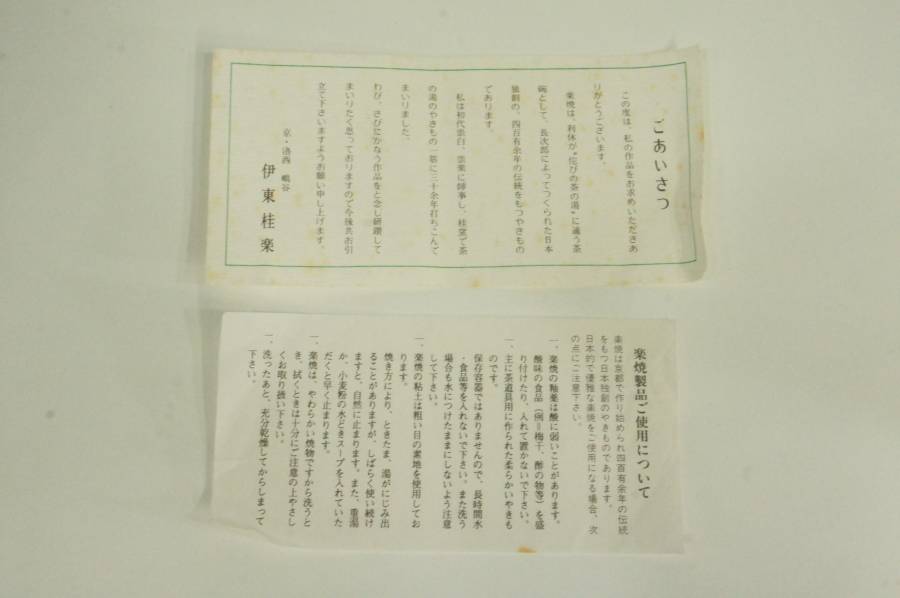 ごあいさつ
この度は、私の作品をお求めいただきあ
りがとうございます。
楽焼は、利休が“侘びの茶の湯”に適う茶
碗として、長次郎によってつくられた日本
独創の、四百有余年の伝統をもつやきもの
であります。
私は初代
に師事し、桂窯で茶
の湯のやきもの一筋に三十余年打ちこんで
まいりました。
わび、さびにかなう作品をと念じ研鑽して
まいりたく思っておりますので今後共お引
立て下さいますようお願い申し上げます。
京・洛西 鳴谷
伊東桂楽
楽焼製品ご使用について
楽焼は京都で作り始められ四百有余年の伝統
をもつ日本独創のやきものであります。
日本的で優雅な楽焼をご使用になる場合、次
の点にご注意下さい。
一、楽焼の釉薬は酸に弱いことがあります。
酸味の食品(例=梅干、酢の物等)を盛
り付けたり、入れて置かないで下さい。
一、主に茶道具用に作られた柔らかいやきも
のです。
保存容器ではありませんので、長時間水
・食品等を入れないで下さい。また洗う
場合も水につけたままにしないよう注意
して下さい。
一、楽焼の粘土は粗い目の素地を使用してお
ります。
焼き方により、ときたま、湯がにじみ出
ることがありますが、しばらく使い続け
ますと、自然に止まります。また、重湯
か、小麦粉の水どきスープを入れていた
だくと早く止まります。
一、楽焼は、やわらかい焼物ですから洗うと
き、拭くときは十分にご注意の上やさし
くお取り扱い下さい。
一、洗ったあと、充分乾燥してからしまって
下さい。